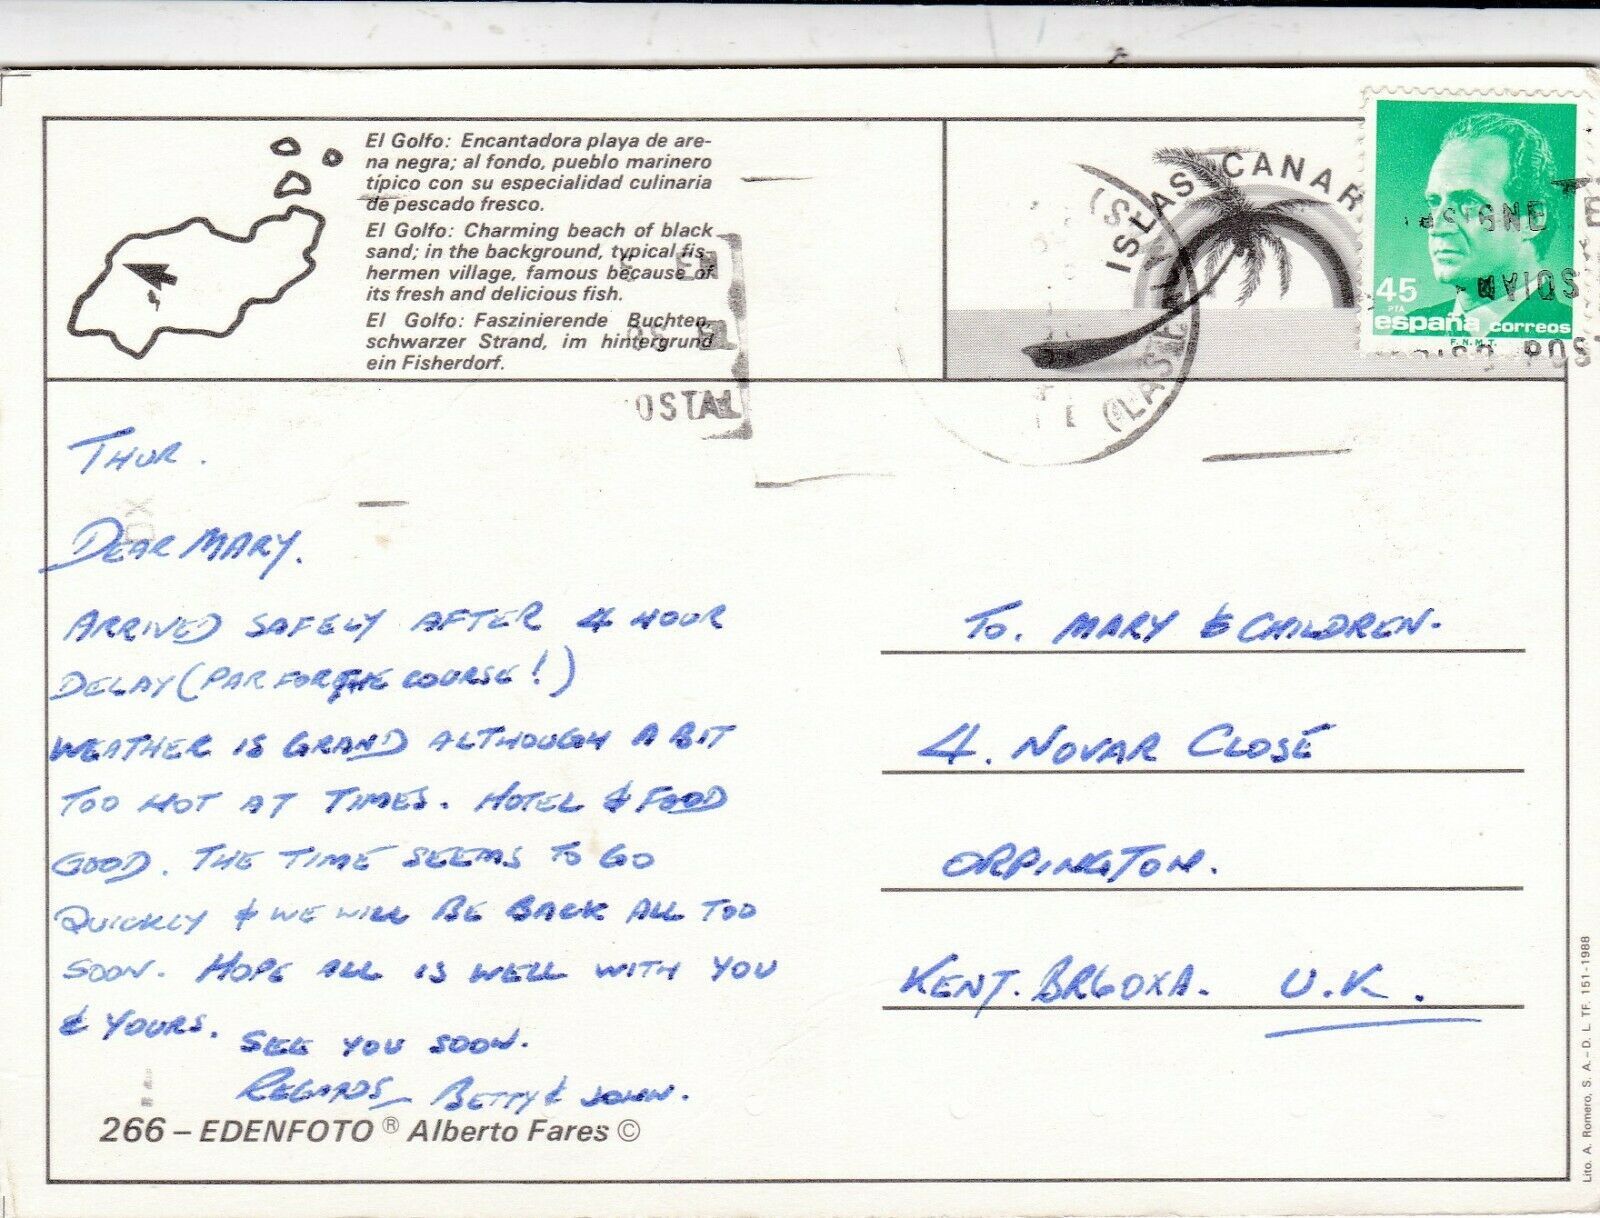 El Golfo: Encantadora playa de are-
na negra; al fondo, pueblo marinero
típico con su especialidad culinaria
de pescado fresco.
El Golfo: Charming beach of black
sand; in the background, typical fis-
hermen village, famous because of
its fresh and delicious fish.
El Golfo: Faszinierende Buchten,
schwarzer Strand, im hintergrund
ein Fisherdorf.
ISLAS CANAR
45
PTA
españa correos
F.N.M.T.
OSTAL
THUR.
DEAR MARY.
ARRIVED SAFELY AFTER 4 HOUR
DELAY (PAR FOR THE COURSE!)
WEATHER IS GRAND ALTHOUGH A BIT
TOO HOT AT TIMES. HOTEL & FOOD
GOOD. THE TIME SEEMS TO GO
QUICKLY & WE WILL BE BACK ALL TOO
SOON. HOPE ALL IS WELL WITH YOU
& YOURS. SEE YOU SOON.
REGARDS BETTY & JOHN.
TO. MARY & CHILDREN.
4. NOVAR CLOSE
ORPINGTON.
KENT. BR6OXA. U.K.
266 – EDENFOTO ® Alberto Fares ©
Lito. A. Romero, S. A. – D. L. TF. 151-1988